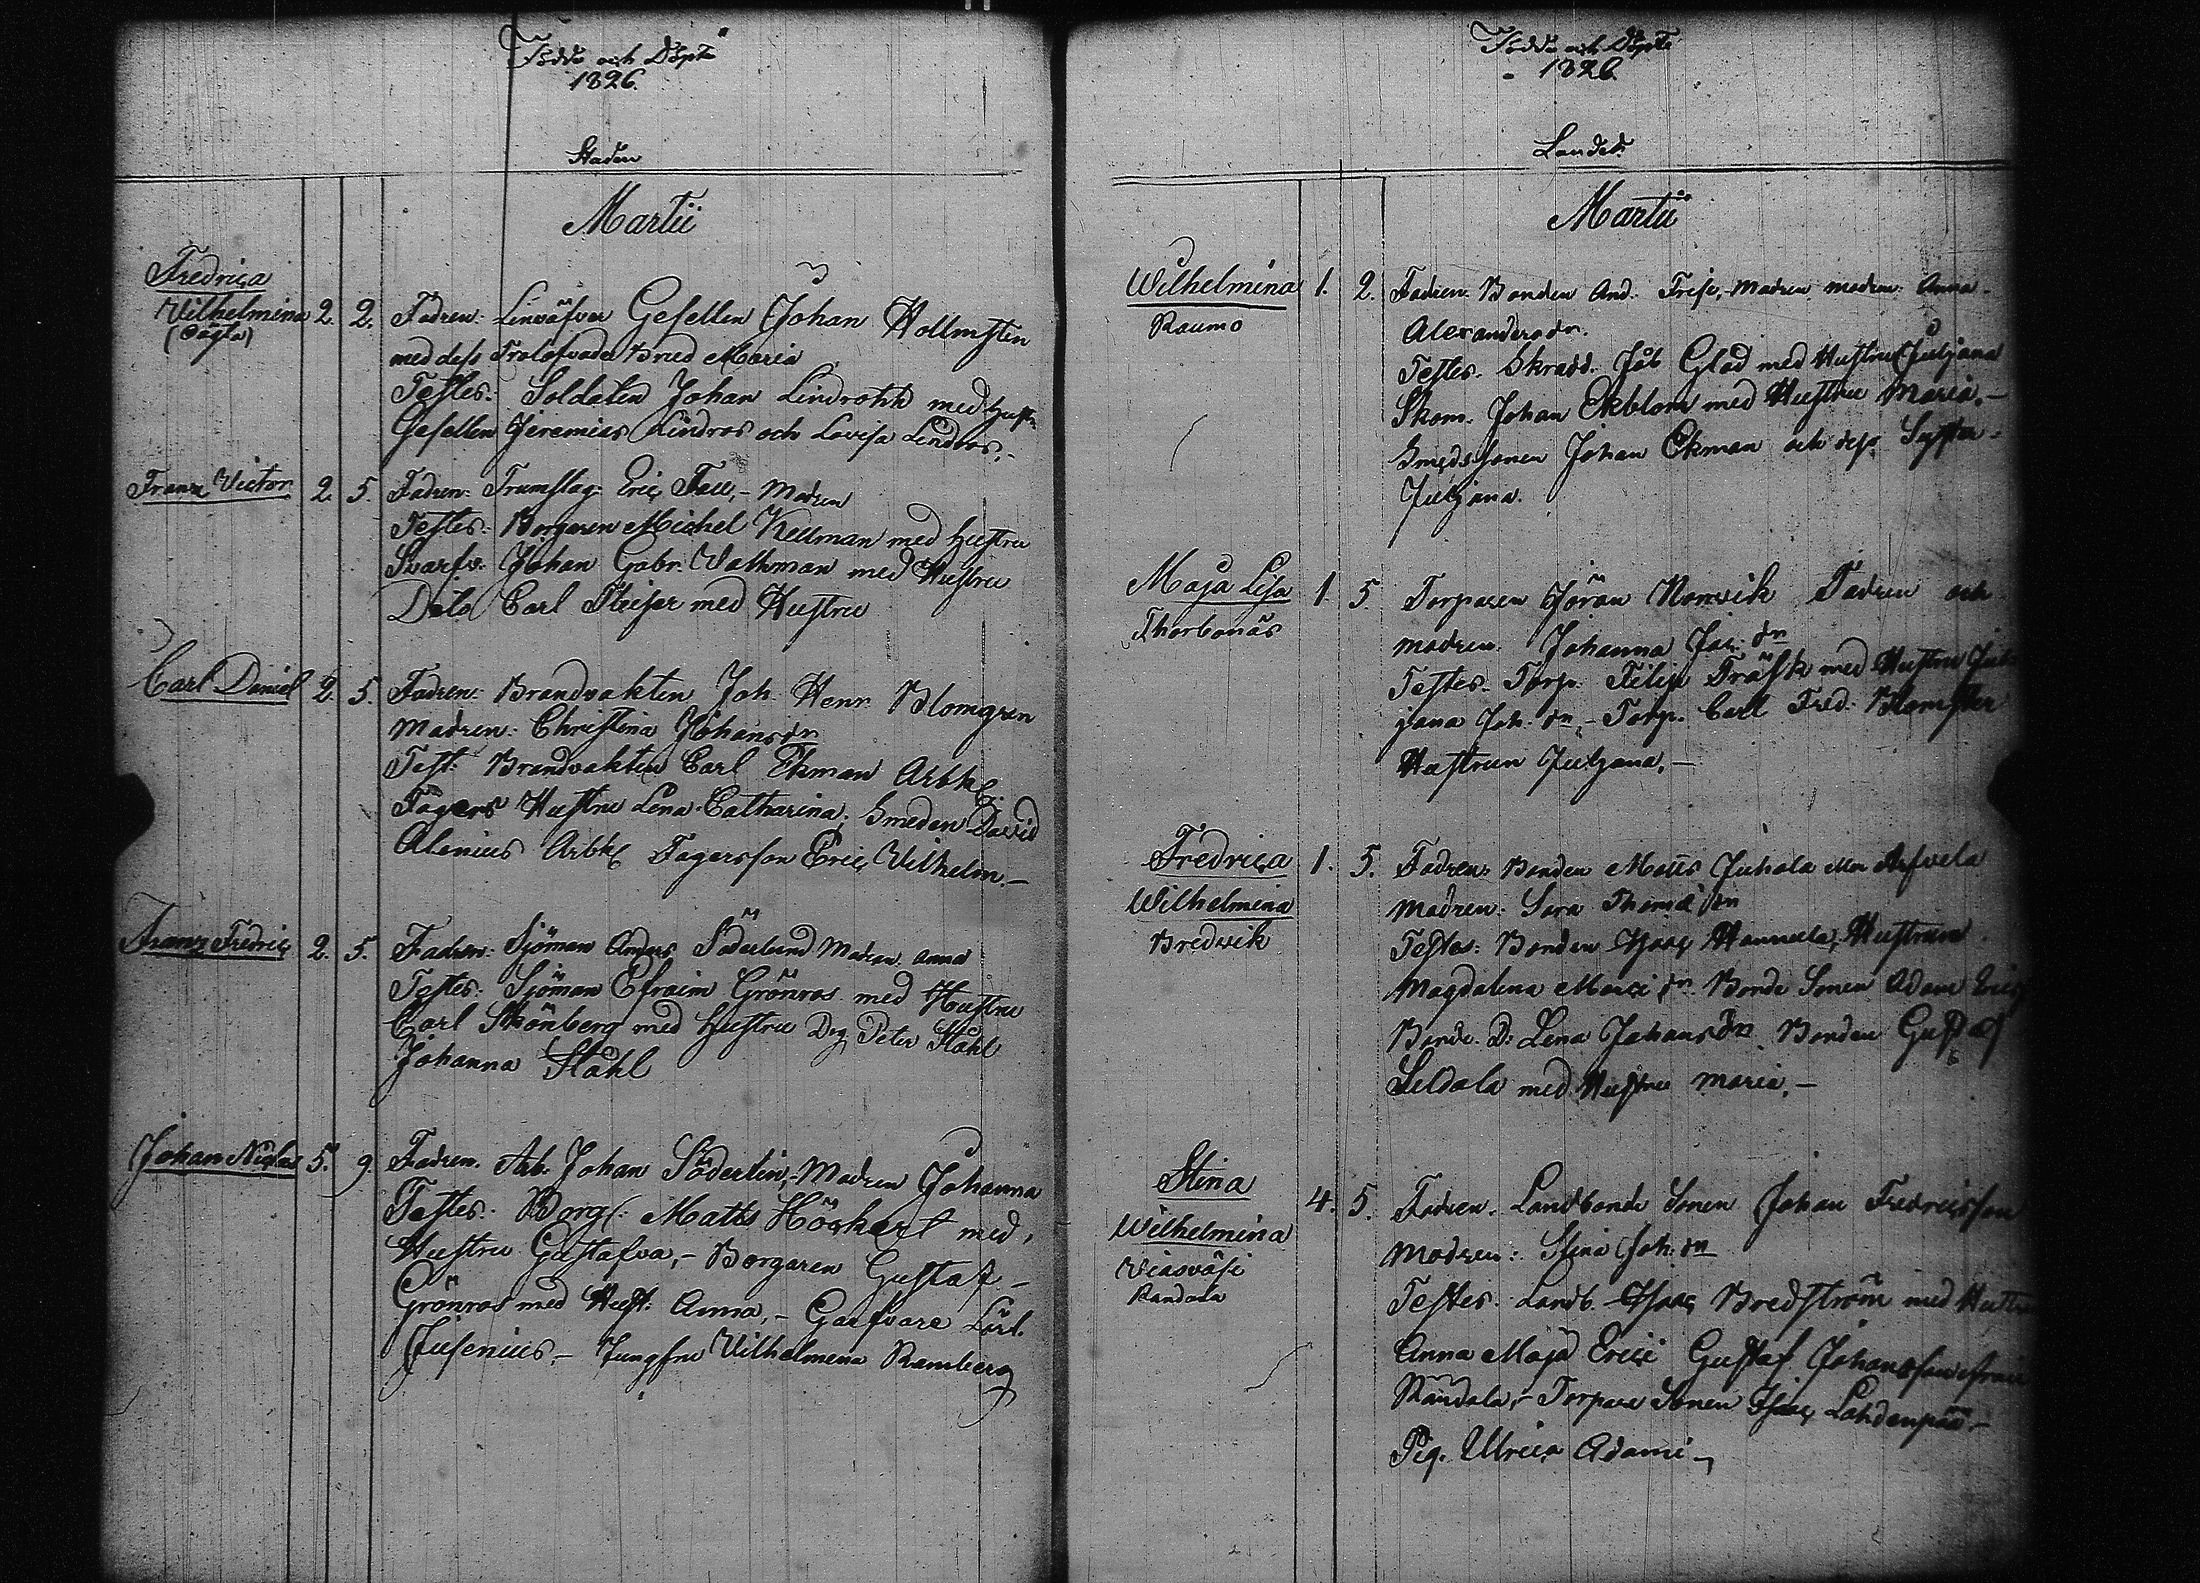 Födde och Döpte
1826.
Staden
Martii
Fredrica
Wilhelmina 2. 2. Fadren: Linväfvar Gesellen Johan Hollmsten
(oägta)
med dess Trolofvade Brud Maria
Testes: Soldaten Johan Lindroth med Hustr:
Gesellen Jeremias Lindros och Lovisa Lindros,-
Franz Victor 2. 5. Fadren: Trumslag: Eric Fall,- Modren
Testes: Borgaren Michel Kellman med Hustru
Garfv: Johan Gabr: Wathman med Hustru
Dito Carl med Hustru
Carl Daniel 2. 5. Fadren: Brandvakten Joh: Henr: Blomgren
Modren: Christina Johansdr
Test: Brandvakten Carl Ekman Arbk:
Fagers Hustru Lena Catharina; Smeden David
Alenius Arbk: Fagersson Eric Vilhelm.-
Franz Fredric 2. 5. Fadren: Sjöman Anders Söderlund Modren Anna
Testes: Sjöman Efraim Grönros med Hustru
Carl Skönberg med Hustru Drg Peter Ståhl
Johanna Ståhl
Johan Niclas 5. 9 Fadren. Arb. Johan Söderlin,- Modren Johanna
Testes: Borg: Matts Höckert med,
Hustru Gustafva,- Borgaren Gustaf -
Grönros med Hust: Anna,- Garfvare Lärl.
Jusenius.- Jungfru Wilhelmina Ramberg
Födde och Döpte
1826.
Landet
Martii
Wilhelmina 1. 2. Fadren: Bonden And: Modren modren: Anna
Raumo
Alexandersdr.
Testes. Skradd. Jåb Glad med Hustru Juljana
Skom. Johan Ekblom med Hustru Maria.-
Smedssonen Johan Ekman och dess Syster
Juljana.
Maja Lisa 1 5. Torparen Jöran Norvik Fadren och
Thorbonäs
modren: Johanna Jac: dr
Testes. Torp: Filip Träsk med Hustru Jul-
jana Joh: dr,- Torp. Carl Fred: Blomster
Hustrun Juljana.-
Fredrica 1. 5. Fadren: Bonden Matts Juhala Arfvela
Wilhelmina
Modren: Sara Thomæ dr
Bredvik
Testes: Bonden Isaac Hannula, Hustrun
Magdalena dr Bonde Sonen Adam Eric
Bonde D: Lena Johansdr Bonden Gustaf
Seldala med Hustru Maria.-
Stina
Wilhelmina 4. 5. Fadren. Landbonde Sonen Johan Fredricsson
Modren: Stina Joh: dr
Randala
Testes. Landb. Isaac Bredström med Hustru
Anna Maja Erici Gustaf Johansson från
Randala,- Torpare Sonen Isaac Lahdenpää.-
Pig. Ulrica Adami -